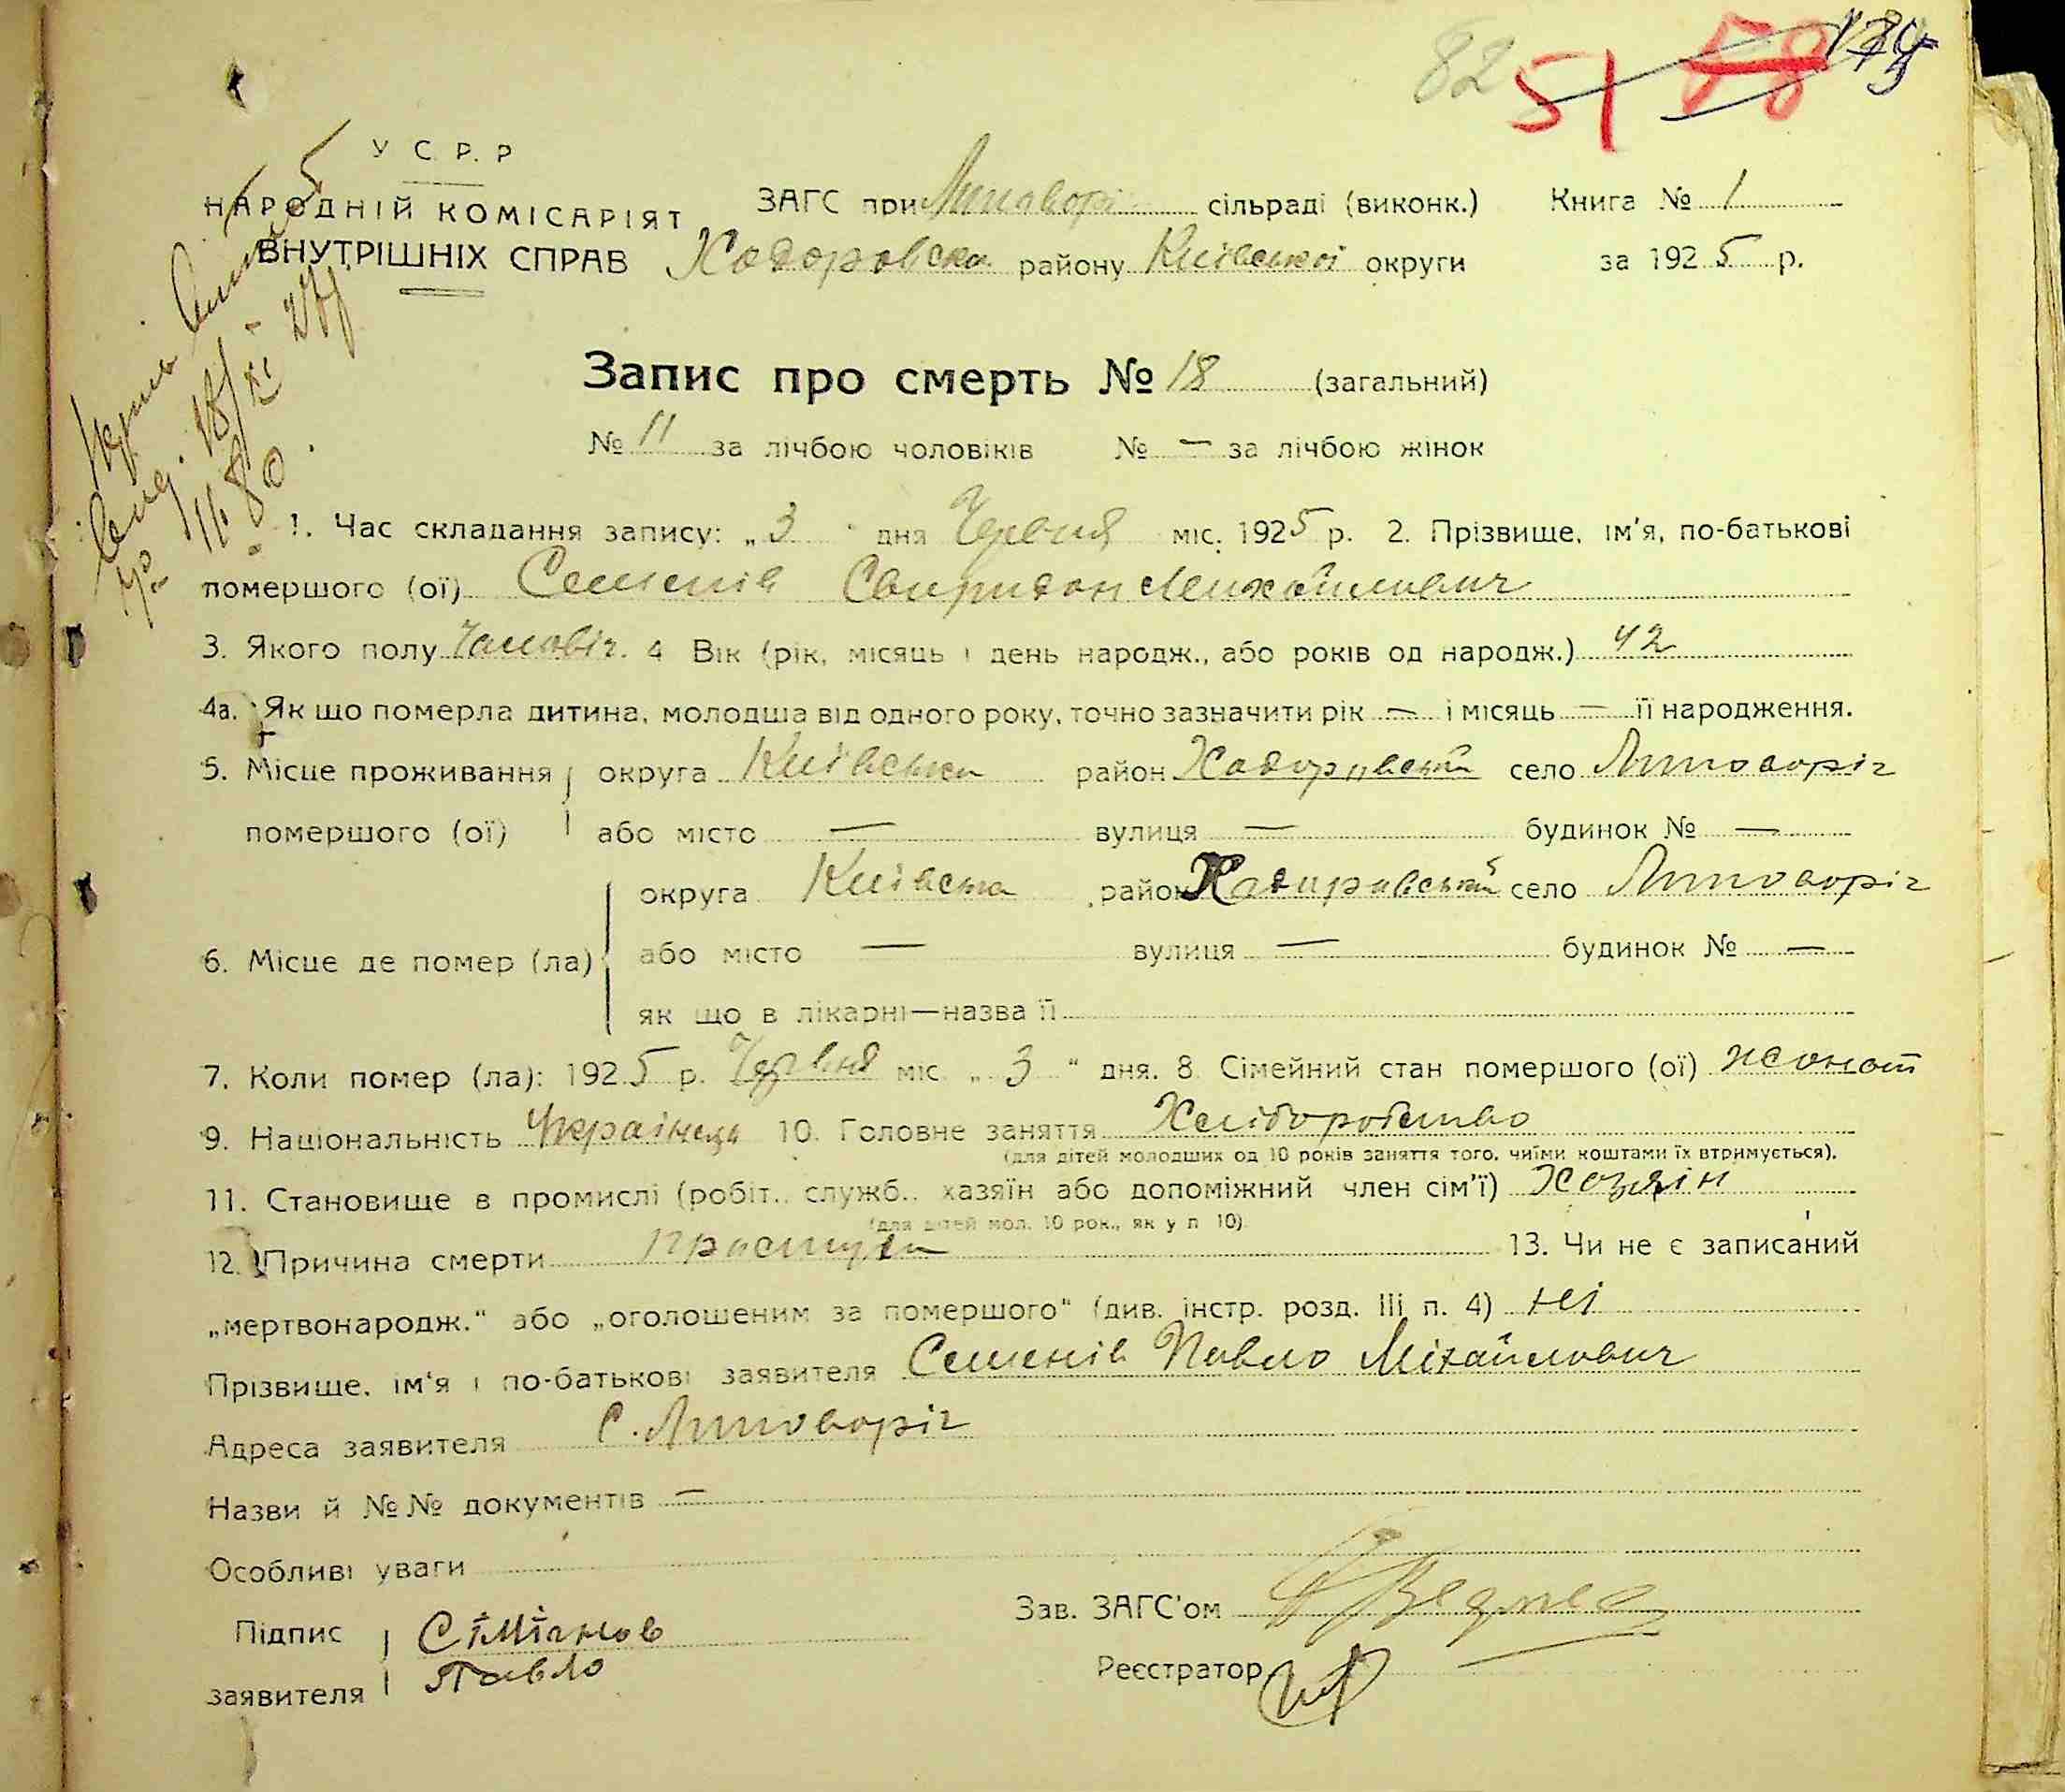 82 51 78
У С. Р. Р
НАРОДНІЙ КОМІСАРІЯТ ЗАГС при Липоворі сільраді (виконк.) Книга № 1
ВНУТРІШНІХ СПРАВ Ходоровска району Київської округи за 1925 р.
Запис про смерть № 18 (загальний)
№ 11 за лічбою чоловіків № — за лічбою жінок
1. Час складання запису: „3 " дня Червня міс. 1925 р. 2. Прізвище, ім'я, по-батькові
помершого (ої) Семенів Свиридон Михайлович
3. Якого полу Чоловіч. 4 Вік (рік, місяць і день народж., або років од народж.) 42
4а. Як що померла дитина, молодша від одного року, точно зазначити рік — і місяць — її народження.
5. Місце проживання округа Київська район Ходоровський село Липоворіг
помершого (ої) або місто — вулиця — будинок № —
округа Київська район Ходоровський село Липоворіг
6. Місце де помер (ла) або місто — вулиця — будинок № —
як що в лікарні—назва її
7. Коли помер (ла): 1925 р. Червня міс. „3" дня. 8. Сімейний стан помершого (ої) жонат
9. Національність Українець 10. Головне заняття Хліборобство
(для дітей молодших од 10 років заняття того, чиїми коштами їх втримується).
11. Становище в промислі (робіт., служб., хазяїн або допоміжний член сім'ї) Хозяін
(для дітей мол. 10 рок., як у п 10).
12. Причина смерти простуда 13. Чи не є записаний
„мертвонародж." або „оголошеним за помершого" (див. інстр. розд. III п. 4) ні
Прізвище, ім'я і по-батькові заявителя Семенів Павло Міхайлович
Адреса заявителя С. Липоворіг
Назви й №№ документів —
Особливі уваги
Зав. ЗАГС'ом
Підпис Сіміанов
Реєстратор
заявителя Павло